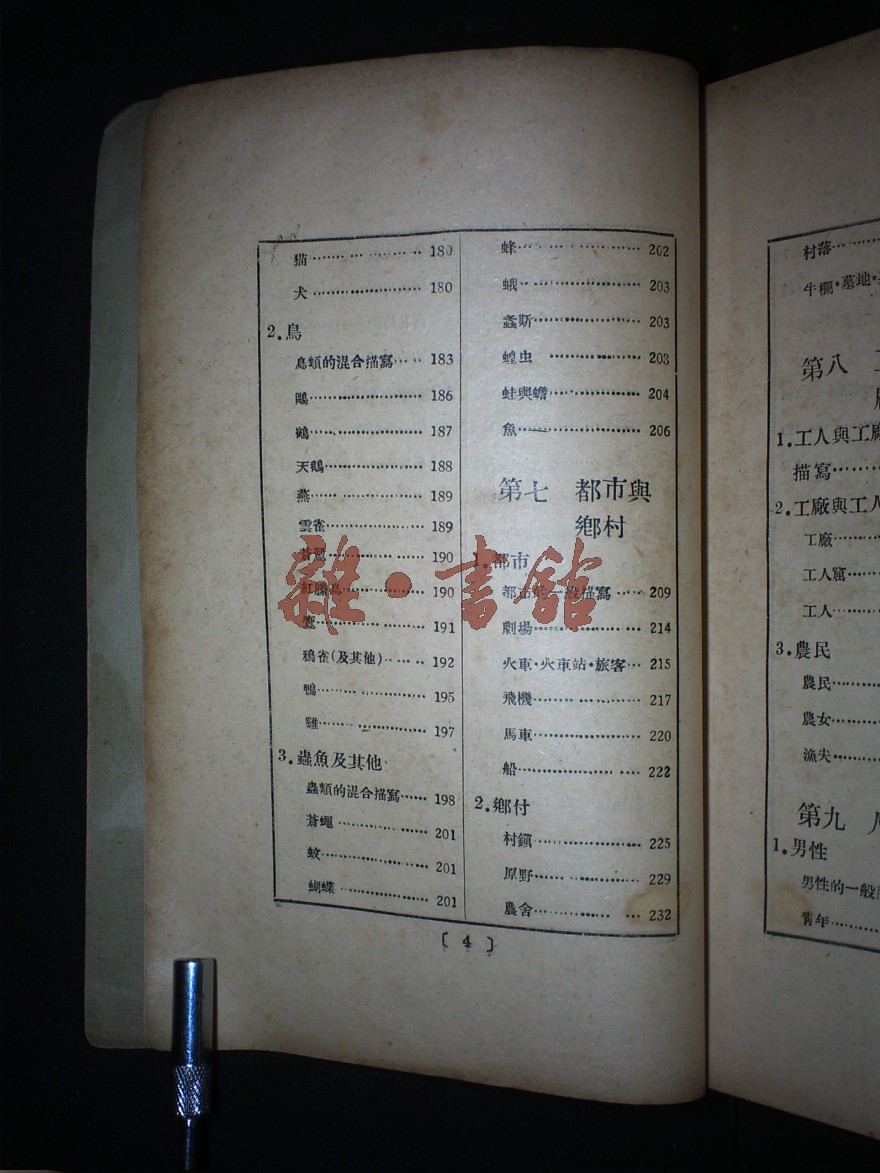 猫 180
犬 180
2.鳥
鳥類的混合描寫 183
鷗 186
鶴 187
天鵝 188
燕 189
雲雀 189
蒼鷺 190
190
鷹 191
鴉雀(及其他) 192
鴨 195
雞 197
3.蟲魚及其他
蟲類的混合描寫 198
蒼蠅 201
蚊 201
蝴蝶 201
蜂 202
蛾 203
螽斯 203
蝗虫 203
蛙與蟾 204
魚 206
第七 都市與
鄉村
1.都市
都市的一般描寫 209
劇場 214
火車·火車站·旅客 215
飛機 217
馬車 220
船 222
2.鄉付
村鎮 225
原野 229
農舍 232
〔 4 〕
村落
牛欄·墓地·
第八
1.工人與工廠
描寫
2.工廠與工人
工廠
工人窟
工人
3.農民
農民
農女
漁夫
第九
1.男性
男性的一般
青年
雜·書館